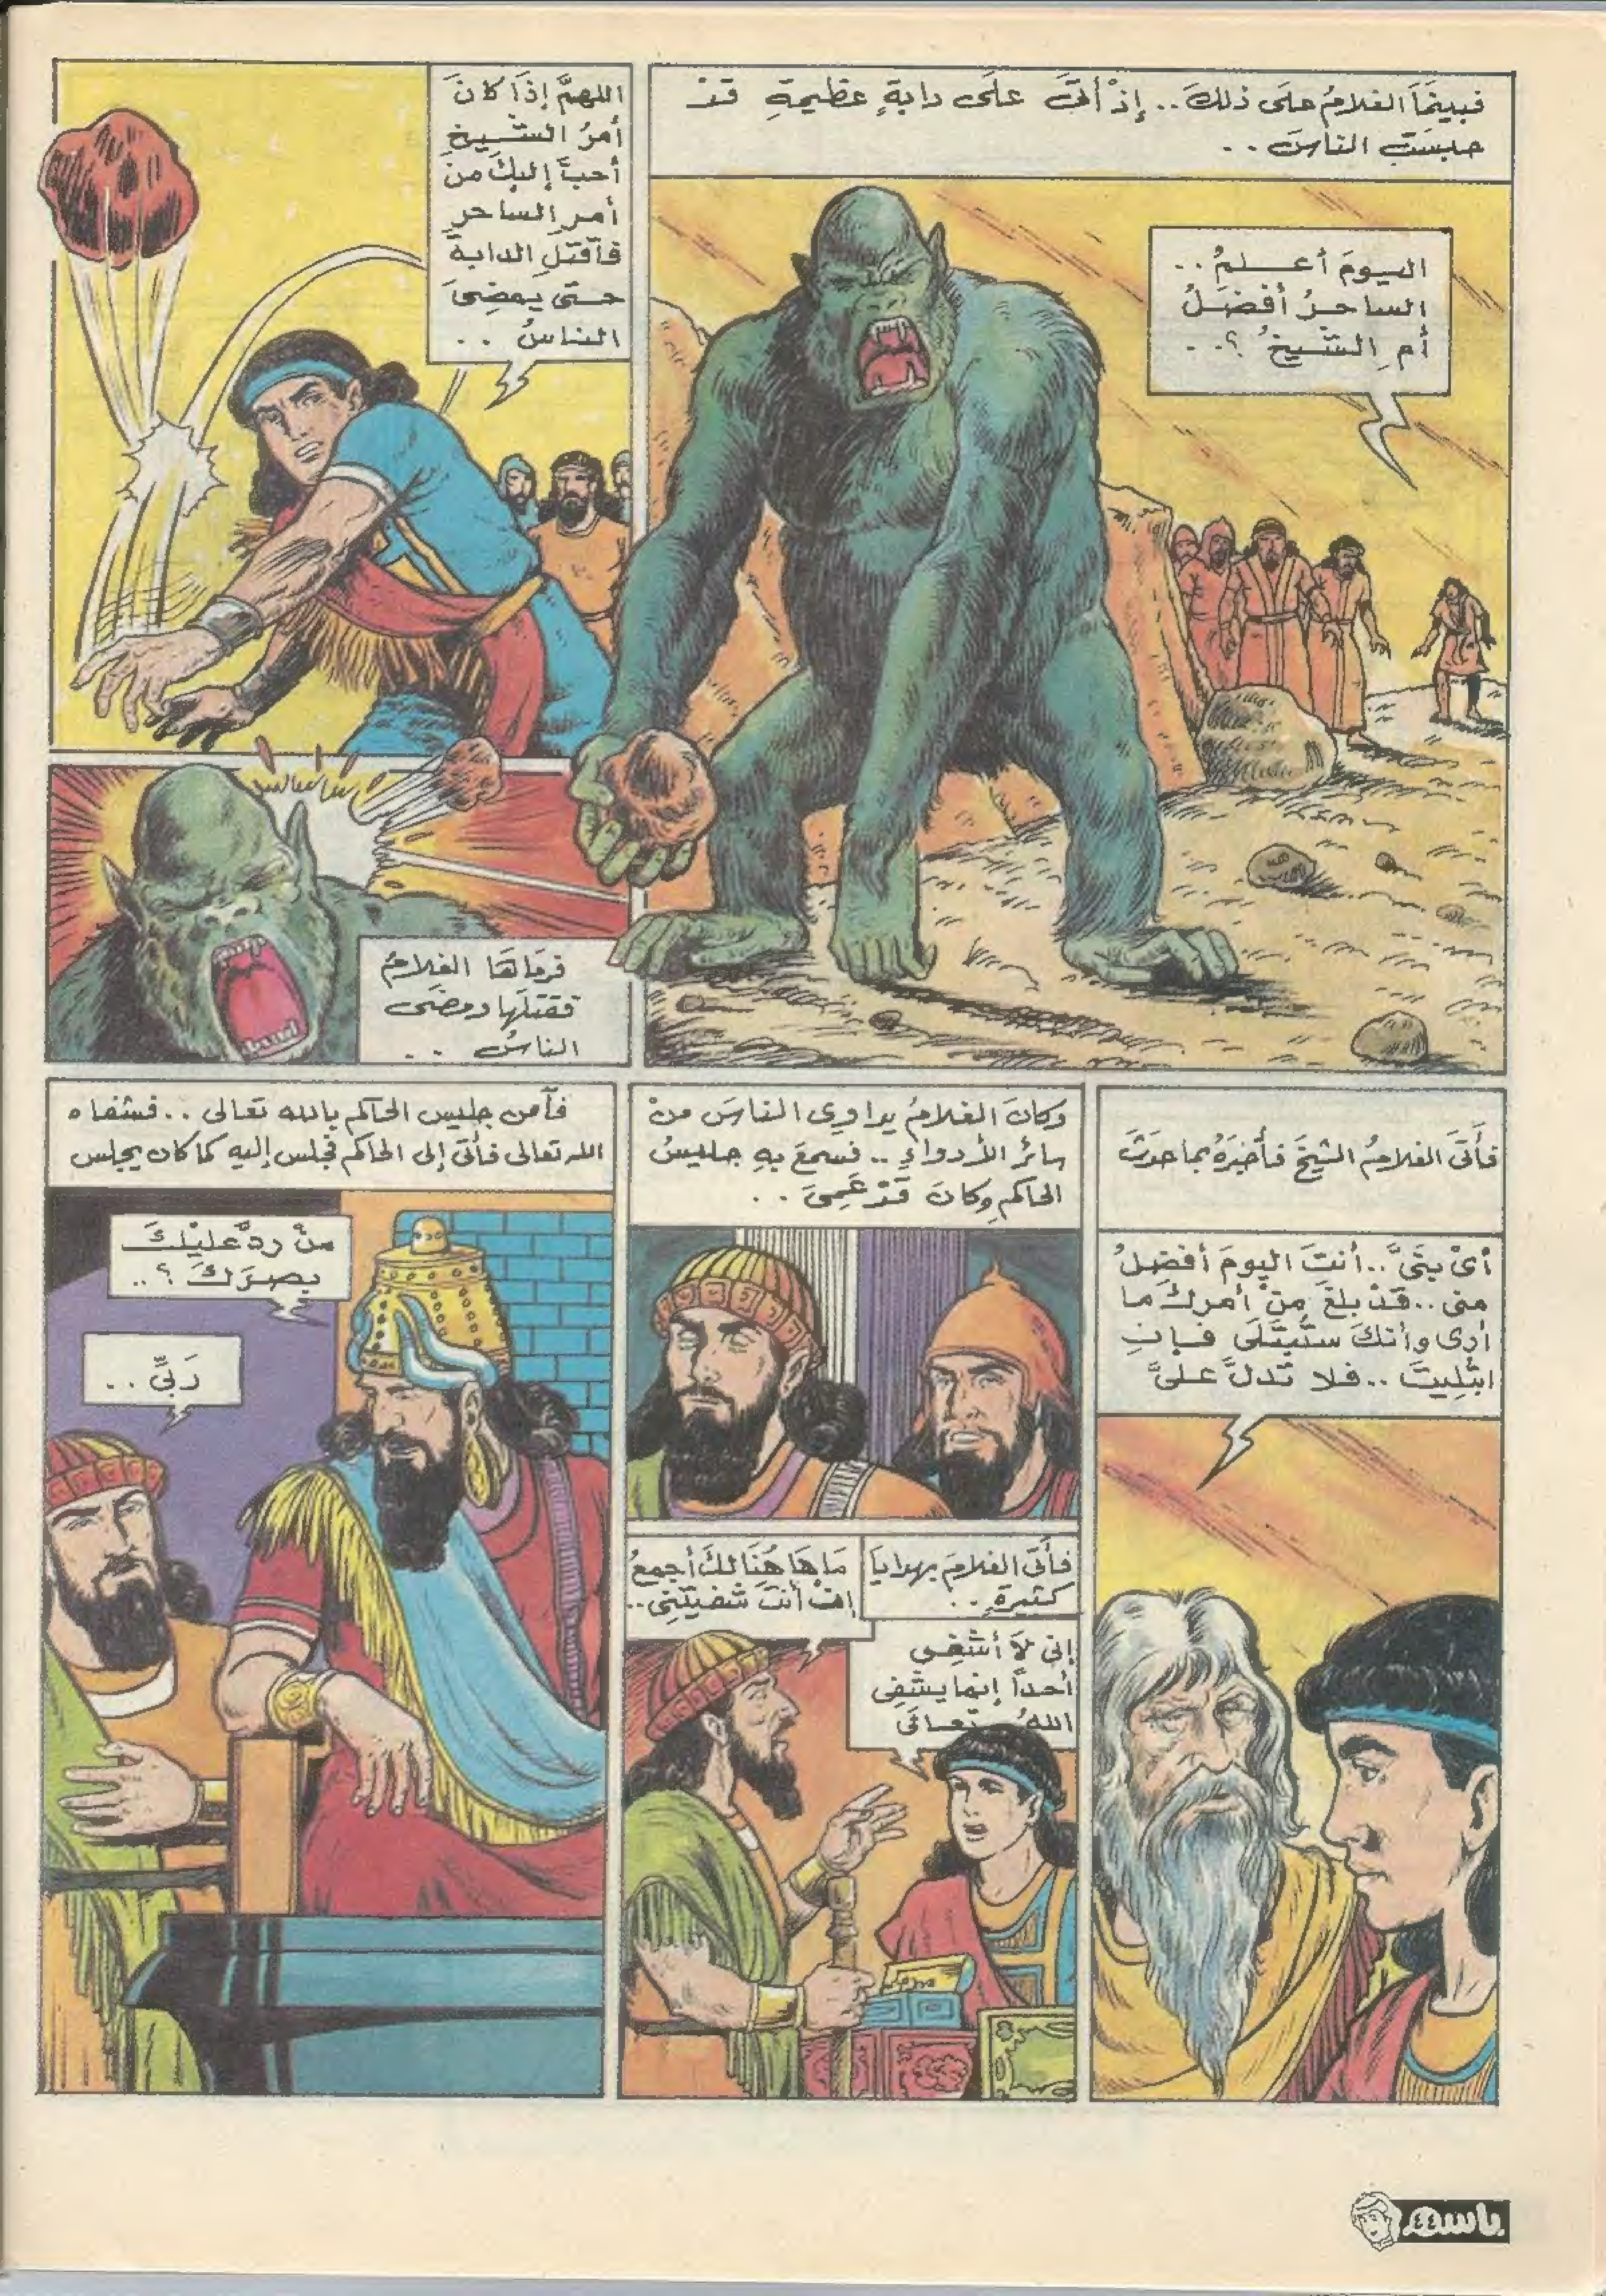 فبينَمَا الغلامُ علَى ذلكَ.. إذْ أتَى علَى دابةٍ عظيمةٍ قدْ
حبسَتِ الناسَ..
اليومَ أعلمُ..
الساحرُ أفضَلُ
أمِ الشيخُ ؟..
اللهمَّ إذَا كانَ
أمرُ الشيخِ
أحبَّ إليكَ منْ
أمرِ الساحرِ
فاَقتلِ الدابةَ
حتى يمضِىَ
الناسُ ..
فرمَاهَا الغلامُ
فقتلَها ومضَى
الناسُ ..
فأتَى الغلامُ الشيخَ فأخبَرَهُ بما حدَثَ
أىْ بنَىَّ.. أنتَ اليومَ أفضلُ
منى.. قَدْ بلغَ مِنْ أمرِكَ ما
أرى وأنكَ ستُبتَلَى فإنِ
ابتُلِيتَ.. فلا تدلَّ علىَّ
وكانَ الغلامُ يداوِى الناسَ منْ
سائرِ الأدواءِ .. فسمعَ بهِ جليسُ
الحاكمِ وكانَ قَدْ عَمِىَ ..
فأتَى الغلامَ بهدايَا
كثيرةٍ ..
مَا هَا هُنَا لكَ أجمعُ
إنْ أنتَ شفيتَنِى..
إنى لاَ أشفِى
أحداً إنما يشفِى
اللهُ تعالَى
فآمن جليس الحاكم بالله تعالى .. فشفاه
الله تعالى فأتى إلى الحاكم فجلس إليه كما كان يجلس
منْ ردَّ عليْكَ
بصرَكَ ؟..
رَبِّى ..
باسم
٤٤